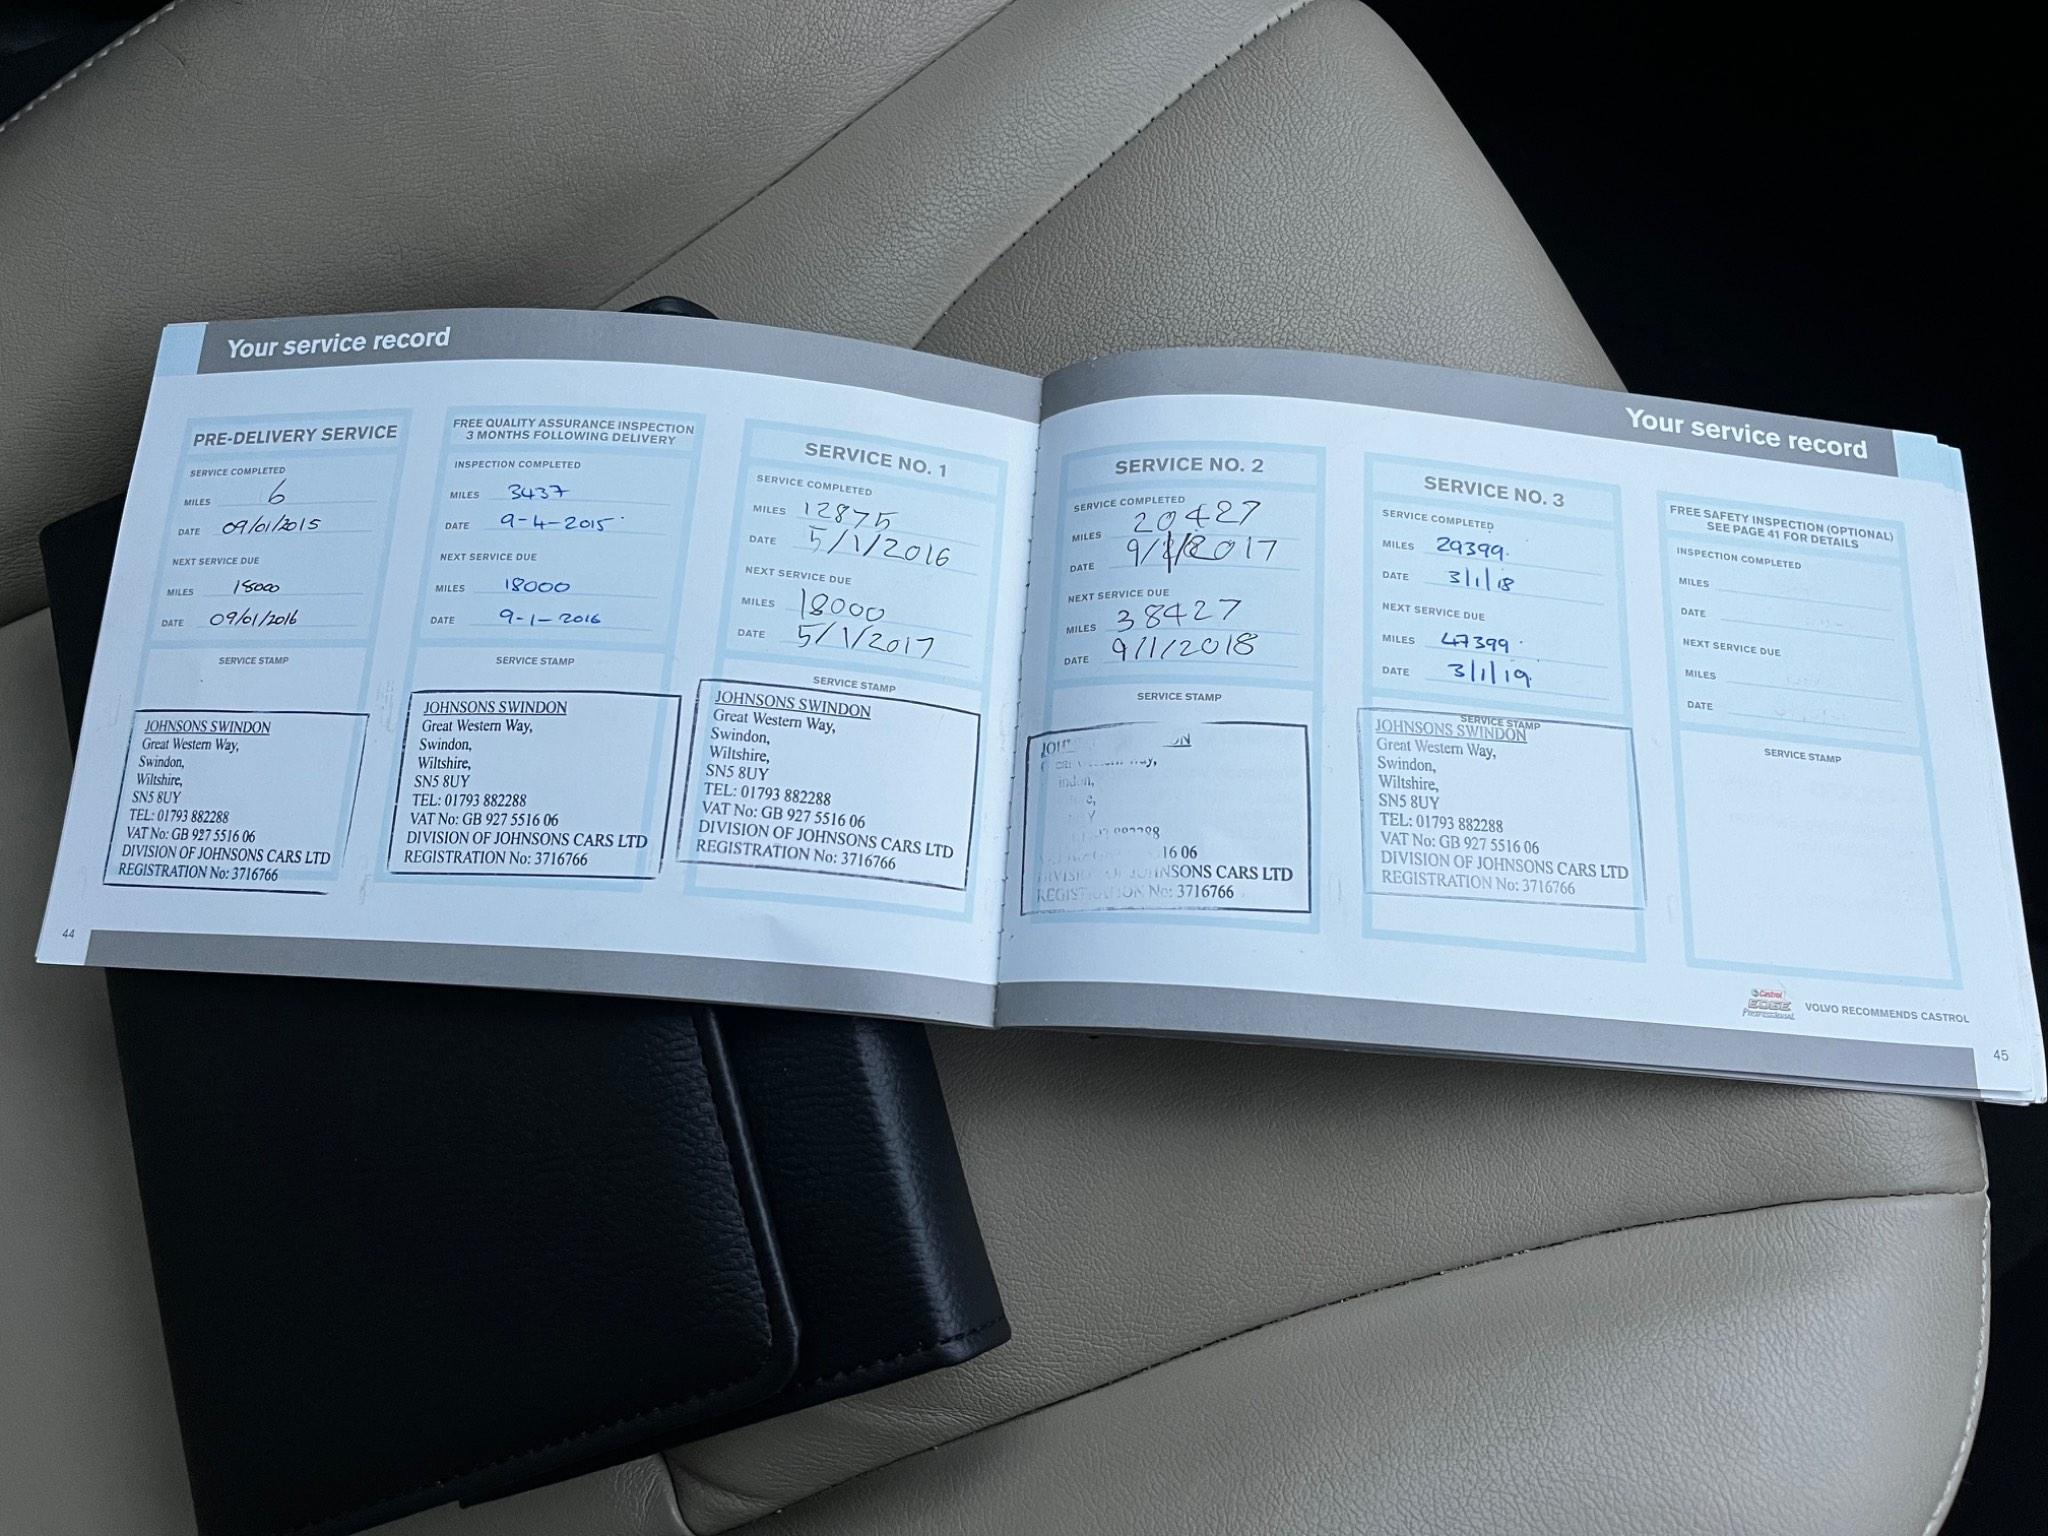 Your service record
PRE-DELIVERY SERVICE
SERVICE COMPLETED
MILES 6
DATE 09/01/2015
NEXT SERVICE DUE
MILES 18000
DATE 09/01/2016
SERVICE STAMP
JOHNSONS SWINDON
Great Western Way,
Swindon,
Wiltshire,
SN5 8UY
TEL: 01793 882288
VAT No: GB 927 5516 06
DIVISION OF JOHNSONS CARS LTD
REGISTRATION No: 3716766
FREE QUALITY ASSURANCE INSPECTION
3 MONTHS FOLLOWING DELIVERY
INSPECTION COMPLETED
MILES 3437
DATE 9-4-2015
NEXT SERVICE DUE
MILES 18000
DATE 9-1-2016
SERVICE STAMP
JOHNSONS SWINDON
Great Western Way,
Swindon,
Wiltshire,
SN5 8UY
TEL: 01793 882288
VAT No: GB 927 5516 06
DIVISION OF JOHNSONS CARS LTD
REGISTRATION No: 3716766
SERVICE NO. 1
SERVICE COMPLETED
MILES 12875
DATE 5/1/2016
NEXT SERVICE DUE
MILES 18000
DATE 5/1/2017
SERVICE STAMP
JOHNSONS SWINDON
Great Western Way,
Swindon,
Wiltshire,
SN5 8UY
TEL: 01793 882288
VAT No: GB 927 5516 06
DIVISION OF JOHNSONS CARS LTD
REGISTRATION No: 3716766
44
Your service record
SERVICE NO. 2
SERVICE COMPLETED
MILES 20427
DATE 9/1/2017
NEXT SERVICE DUE
MILES 38427
DATE 9/1/2018
SERVICE STAMP
16 06
JOHNSONS CARS LTD
No: 3716766
SERVICE NO. 3
SERVICE COMPLETED
MILES 29399
DATE 3/1/18
NEXT SERVICE DUE
MILES 47399
DATE 3/1/19
SERVICE STAMP
JOHNSONS SWINDON
Great Western Way,
Swindon,
Wiltshire,
SN5 8UY
TEL: 01793 882288
VAT No: GB 927 5516 06
DIVISION OF JOHNSONS CARS LTD
REGISTRATION No: 3716766
FREE SAFETY INSPECTION (OPTIONAL)
SEE PAGE 41 FOR DETAILS
INSPECTION COMPLETED
MILES
DATE
NEXT SERVICE DUE
MILES
DATE
SERVICE STAMP
Castrol
EDGE
Professional
VOLVO RECOMMENDS CASTROL
45